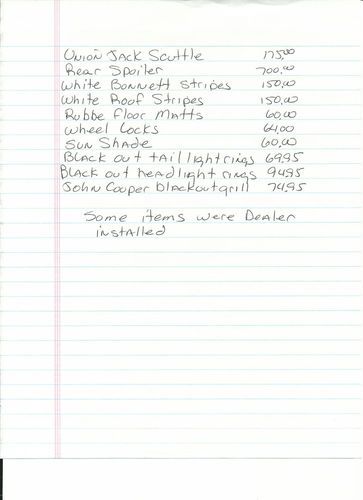 Union Jack Scuttle 175.00
Rear Spoiler 700.00
White Bonnett Stripes 150.00
White Roof Stripes 150.00
Rubbe Floor Matts 60.00
Wheel Locks 64.00
Sun Shade 60.00
Black out taillight rings 69.95
Black out headlight rings 94.95
John Cooper blackout grill 74.95
Some items were Dealer
installed